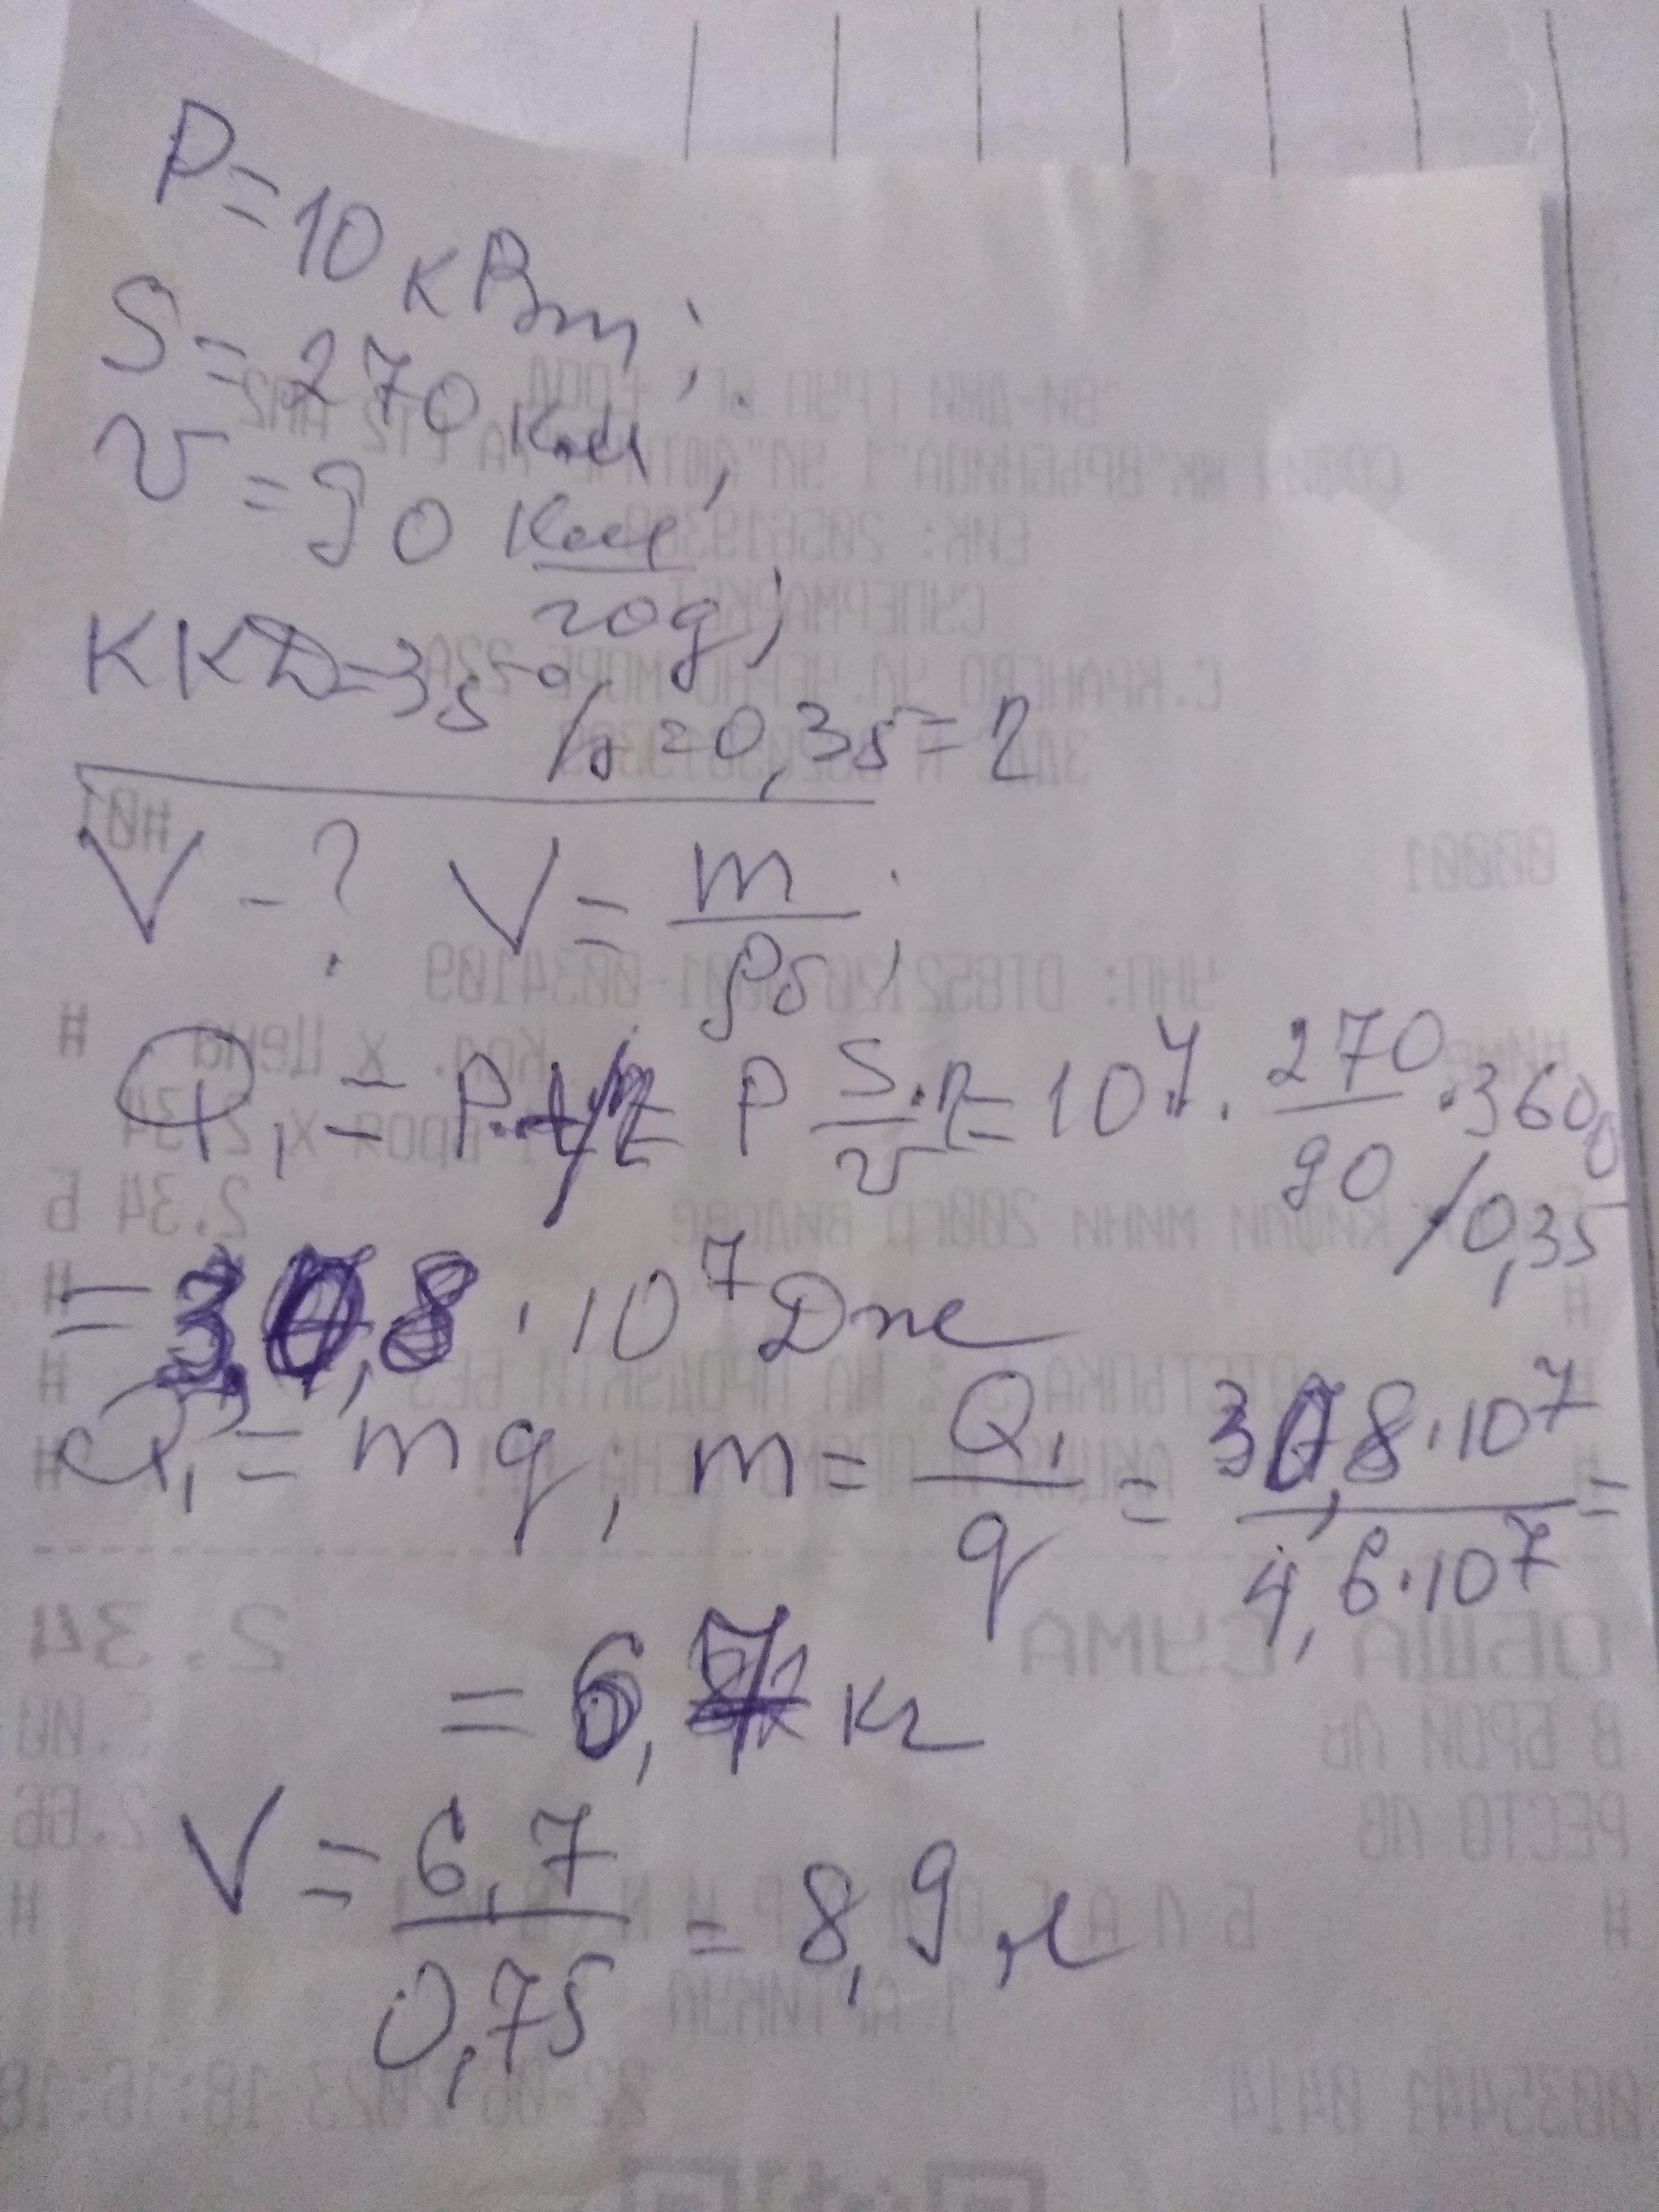 P = 10 кВт;
S = 270 км;
v = 90 км/год;
ККД = 35 % = 0,35 = η
V - ? V = m/ρб;
Q₁ = P S/v · η = 10⁴ · 270/90 · 3600/0,35
= 30,8 · 10⁷ Дж
Q₁ = mq; m = Q₁/q = 30,8 · 10⁷/4,6 · 10⁷ =
= 6,7 кг
V = 6,7/0,75 = 8,9 л